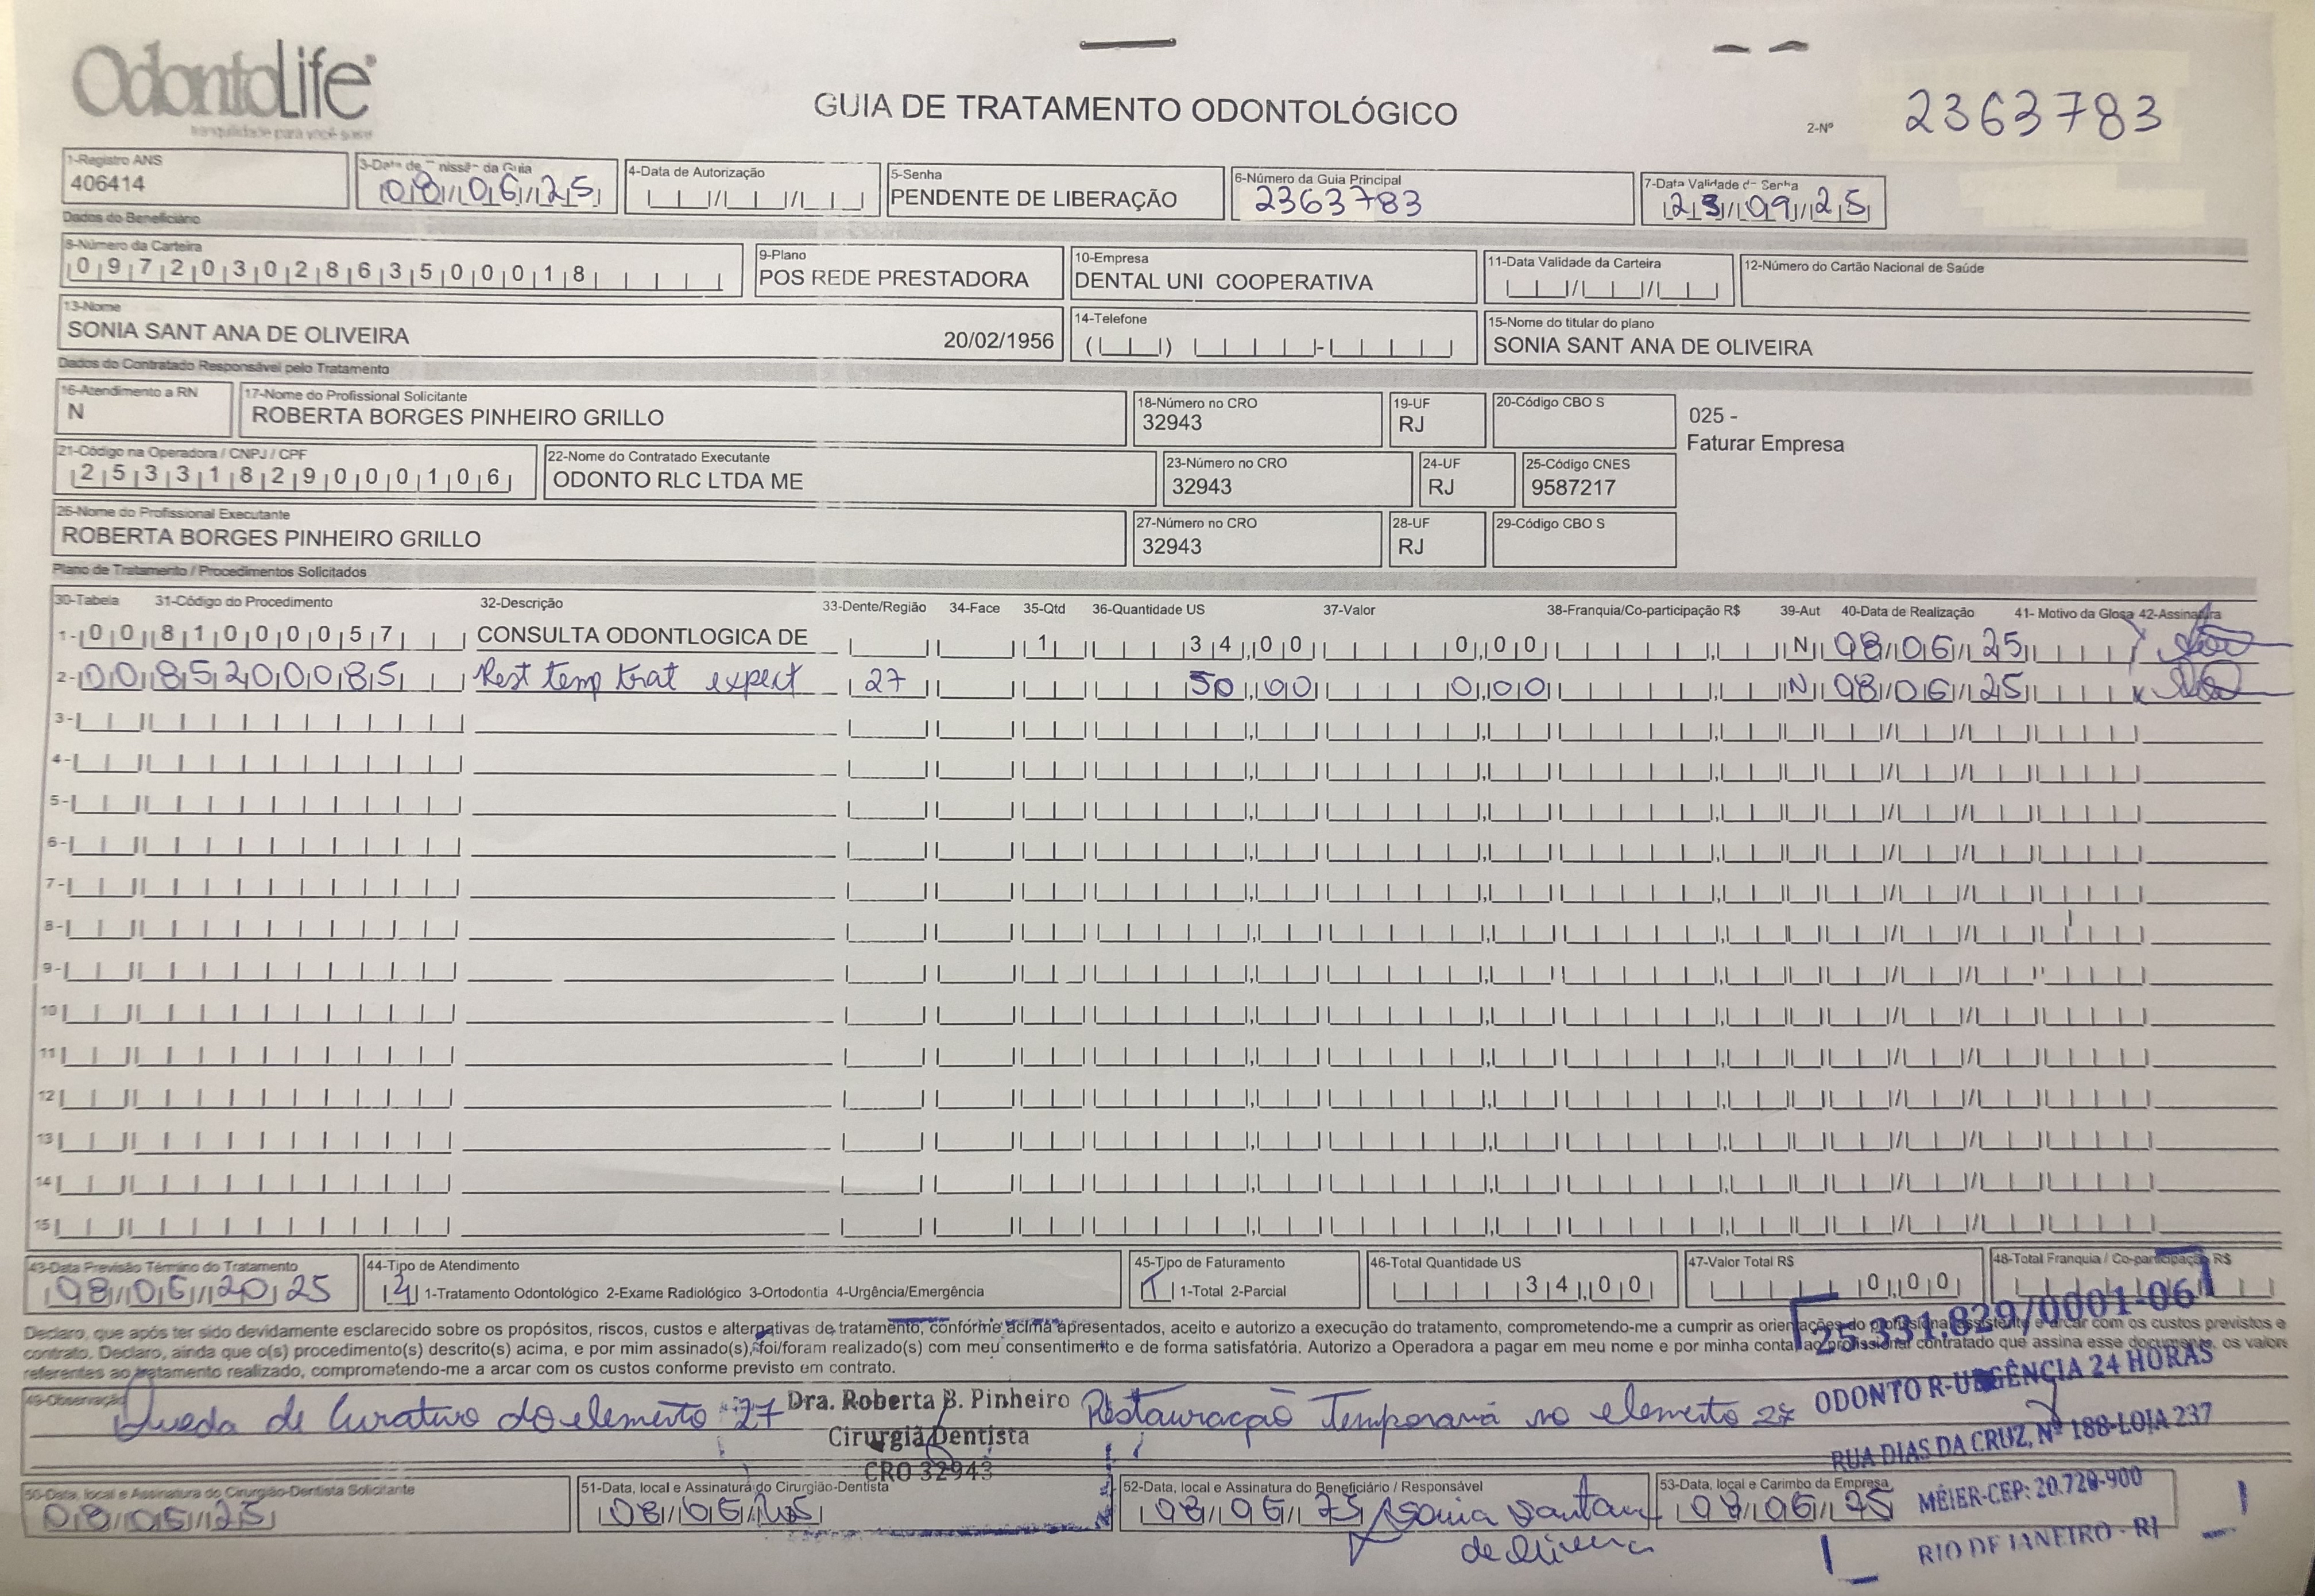 OdontoLife®
tranquilidade para você sorrir
GUIA DE TRATAMENTO ODONTOLÓGICO
2-Nº 2363783
1-Registro ANS
406414
3-Data de Emissão da Guia
08/06/25
4-Data de Autorização
5-Senha
PENDENTE DE LIBERAÇÃO
6-Número da Guia Principal
2363783
7-Data Validade da Senha
23/09/25
Dados do Beneficiário
8-Número da Carteira
09720302863500018
9-Plano
POS REDE PRESTADORA
10-Empresa
DENTAL UNI COOPERATIVA
11-Data Validade da Carteira
12-Número do Cartão Nacional de Saúde
13-Nome
SONIA SANT ANA DE OLIVEIRA 20/02/1956
14-Telefone
15-Nome do titular do plano
SONIA SANT ANA DE OLIVEIRA
Dados do Contratado Responsável pelo Tratamento
16-Atendimento a RN
N
17-Nome do Profissional Solicitante
ROBERTA BORGES PINHEIRO GRILLO
18-Número no CRO
32943
19-UF
RJ
20-Código CBO S
025 -
Faturar Empresa
21-Código na Operadora / CNPJ / CPF
25331829000106
22-Nome do Contratado Executante
ODONTO RLC LTDA ME
23-Número no CRO
32943
24-UF
RJ
25-Código CNES
9587217
26-Nome do Profissional Executante
ROBERTA BORGES PINHEIRO GRILLO
27-Número no CRO
32943
28-UF
RJ
29-Código CBO S
Plano de Tratamento / Procedimentos Solicitados
30-Tabela 31-Código do Procedimento 32-Descrição 33-Dente/Região 34-Face 35-Qtd 36-Quantidade US 37-Valor 38-Franquia/Co-participação R$ 39-Aut 40-Data de Realização 41- Motivo da Glosa 42-Assinatura
1- 00 81000057 CONSULTA ODONTLOGICA DE 1 34,00 0,00 N 08/06/25
2- 00 85200085 Rest temp trat expect 27 50,00 0,00 N 08/06/25
3-
4-
5-
6-
7-
8-
9-
10
11
12
13
14
15
43-Data Previsão Término do Tratamento
08/06/2025
44-Tipo de Atendimento
4 1-Tratamento Odontológico 2-Exame Radiológico 3-Ortodontia 4-Urgência/Emergência
45-Tipo de Faturamento
1 1-Total 2-Parcial
46-Total Quantidade US
34,00
47-Valor Total R$
0,00
48-Total Franquia / Co-participação R$
Declaro, que após ter sido devidamente esclarecido sobre os propósitos, riscos, custos e alternativas de tratamento, conforme acima apresentados, aceito e autorizo a execução do tratamento, comprometendo-me a cumprir as orientações do profissional assistente e arcar com os custos previstos e
contrato. Declaro, ainda que o(s) procedimento(s) descrito(s) acima, e por mim assinado(s), foi/foram realizado(s) com meu consentimento e de forma satisfatória. Autorizo a Operadora a pagar em meu nome e por minha conta, ao profissional contratado que assina esse documento, os valores
referentes ao tratamento realizado, comprometendo-me a arcar com os custos conforme previsto em contrato.
49-Observação
Queda de Curativo do elemento 27 Restauração Temporaria no elemento 27
Dra. Roberta B. Pinheiro
Cirurgiã Dentista
CRO 32943
25.331.829/0001-06
ODONTO R-URGÊNCIA 24 HORAS
RUA DIAS DA CRUZ, Nº 188-LOJA 237
MÉIER-CEP: 20.720-900
RIO DE JANEIRO - RJ
50-Data, local e Assinatura do Cirurgião-Dentista Solicitante
08/06/25
51-Data, local e Assinatura do Cirurgião-Dentista
08/06/25
52-Data, local e Assinatura do Beneficiário / Responsável
08/06/25 Sonia Santana
de Oliveira
53-Data, local e Carimbo da Empresa
08/06/25